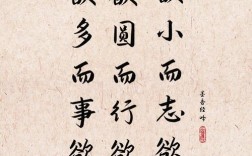 欲小而志欲
欲圆而行欲
欲多而事欲
墨香